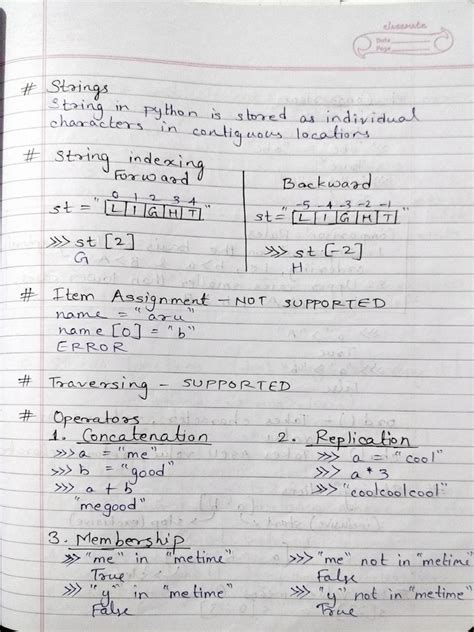 classmate
Date
Page
# Strings
String in python is stored as individual
characters in contiguous locations
# String indexing
Forward
0 1 2 3 4
st = "L I G H T"
>>> st [2]
G
Backward
-5 -4 -3 -2 -1
st = "L I G H T"
>>> st [-2]
H
# Item Assignment - NOT SUPPORTED
name = "aru"
name [0] = "b"
ERROR
# Traversing - SUPPORTED
# Operators
1. Concatenation
>>> a = "me"
>>> b = "good"
>>> a + b
"megood"
2. Replication
>>> a = "cool"
>>> a * 3
>>> "coolcoolcool"
3. Membership
>>> "me" in "metime"
True
>>> "y" in "metime"
False
>>> "me" not in "metime"
False
>>> "y" not in "metime"
True